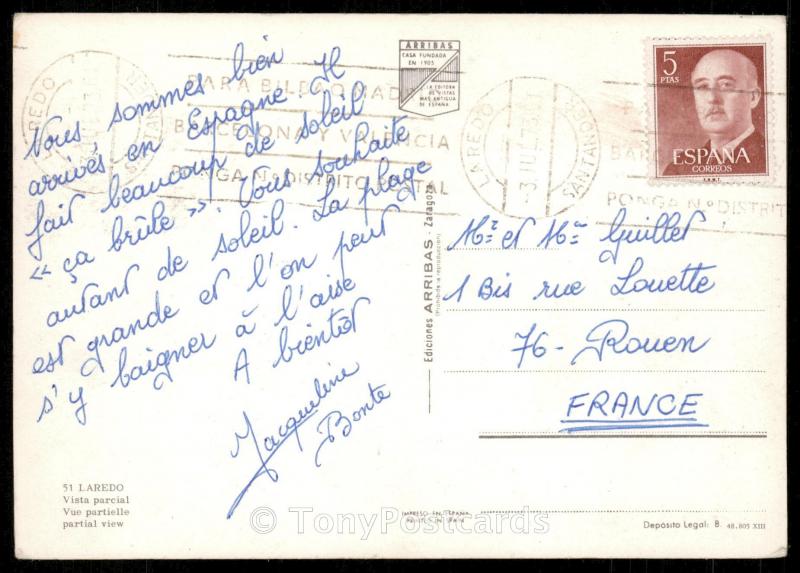 Nous sommes bien
arrivés en Espagne. Il
fait beaucoup de soleil
« ça brûle ». Vous souhaite
autant de soleil. La plage
est grande et l'on peut
s'y baigner à l'aise
A bientôt
Jacqueline
Bonte
51 LAREDO
Vista parcial
Vue partielle
partial view
ARRIBAS
CASA FUNDADA
EN 1905
LA EDITORA
DE VISTAS
MAS ANTIGUA
DE ESPAÑA
LAREDO
SANTANDER
PARA BILBAO MADRID
BARCELONA Y VALENCIA
PONGA Nº DISTRITO POSTAL
Ediciones ARRIBAS - Zaragoza
(Prohibida la reproducción)
LAREDO
3 JUL 7
SANTANDER
PONGA Nº DISTRIT
5
PTAS
ESPAÑA
CORREOS
F.N.M.T.
Mr et Mme Guillet
1 Bis rue Louette
76 - Rouen
FRANCE
IMPRESO EN ESPAÑA
PRINTED IN SPAIN
Depósito Legal: B. 48.805 XIII
© TonyPostcards